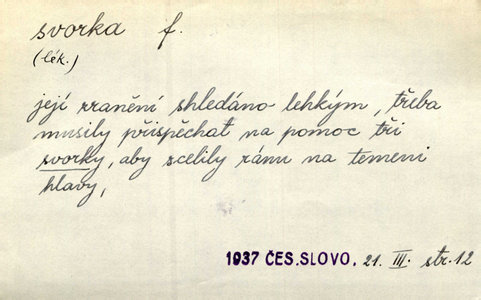 svorka f.
(lék.)
její zranění shledáno lehkým, třeba
musily přispěchat na pomoc tři
svorky, aby scelily ránu na temeni
hlavy,
1937 ČES.SLOVO. 21. III. str. 12